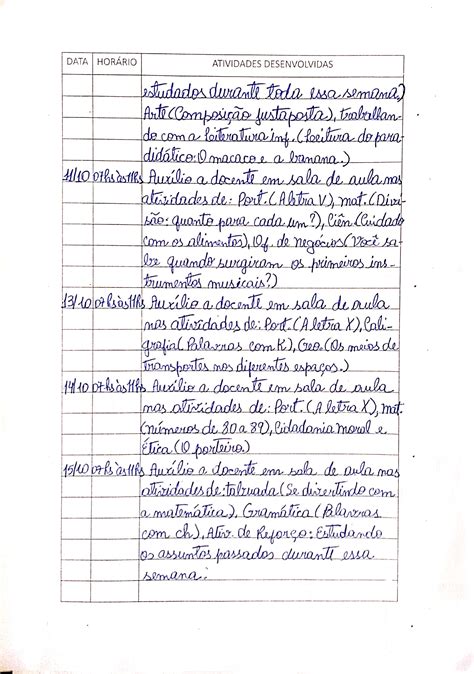 DATA HORÁRIO ATIVIDADES DESENVOLVIDAS
estudados durante toda essa semana,)
Arte (Composição justaposta), trabalhan-
do com a Literatura inf. (Leitura do para-
didático: O macaco e a banana.)
11/10 07hs às 11hs Auxílio a docente em sala de aula nas
atividades de: Port. (A letra V), mat. (Divi-
são: quanto para cada um?), Ciên (Cuidado
com os alimentos), Of. de negócios (Você sa-
be quando surgiram os primeiros ins-
trumentos musicais?)
13/10 07hs às 11hs Auxílio a docente em sala de aula
nas atividades de: Port. (A letra X), Cali-
grafia (Palavras com K), Geo. (Os meios de
transportes nos diferentes espaços.)
14/10 07hs às 11hs Auxílio a docente em sala de aula
nas atividades de: Port. (A letra X), mat.
(números de 30 a 39), Cidadania moral e
Ética (O porteiro)
15/10 07hs às 11hs Auxílio a docente em sala de aula nas
atividades de: tabuada (Se divertindo com
a matemática), Gramática (Palavras
com ch), Ativ. de Reforço: Estudando
os assuntos passados durante essa
semana.